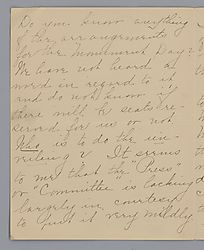 Do you know anything
of the arrangements
for the Monument Day?
We have not heard a
word in regard to it
and do not know if
there will be seats re-
served for us or not
Who is to do the un-
veiling? It seems
to me that the "Press"
or "Committee" is lacking
largely in courtesy
to put it very mildly